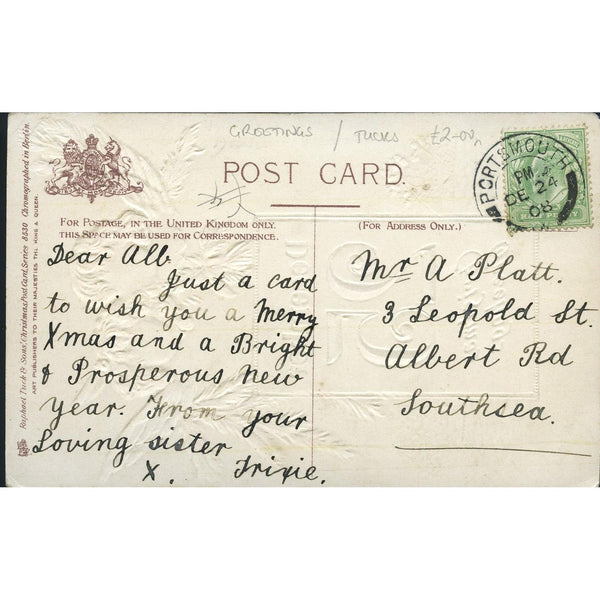 GREETINGS / TUCKS £2-00
POST CARD.
FOR POSTAGE, IN THE UNITED KINGDOM ONLY.
THIS SPACE MAY BE USED FOR CORRESPONDENCE.
(FOR ADDRESS ONLY.)
PORTSMOUTH
PM
DE 24
08
Dear Alb
Just a card
to wish you a Merry
Xmas and a Bright
& Prosperous New
year. From your
Loving sister
X. Trixie.
Mr A Platt.
3 Leopold St.
Albert Rd
Southsea.
Raphael Tuck & Sons' Christmas Post Card, Series 8530 Chromographed in Berlin.
ART PUBLISHERS TO THEIR MAJESTIES THE KING & QUEEN.